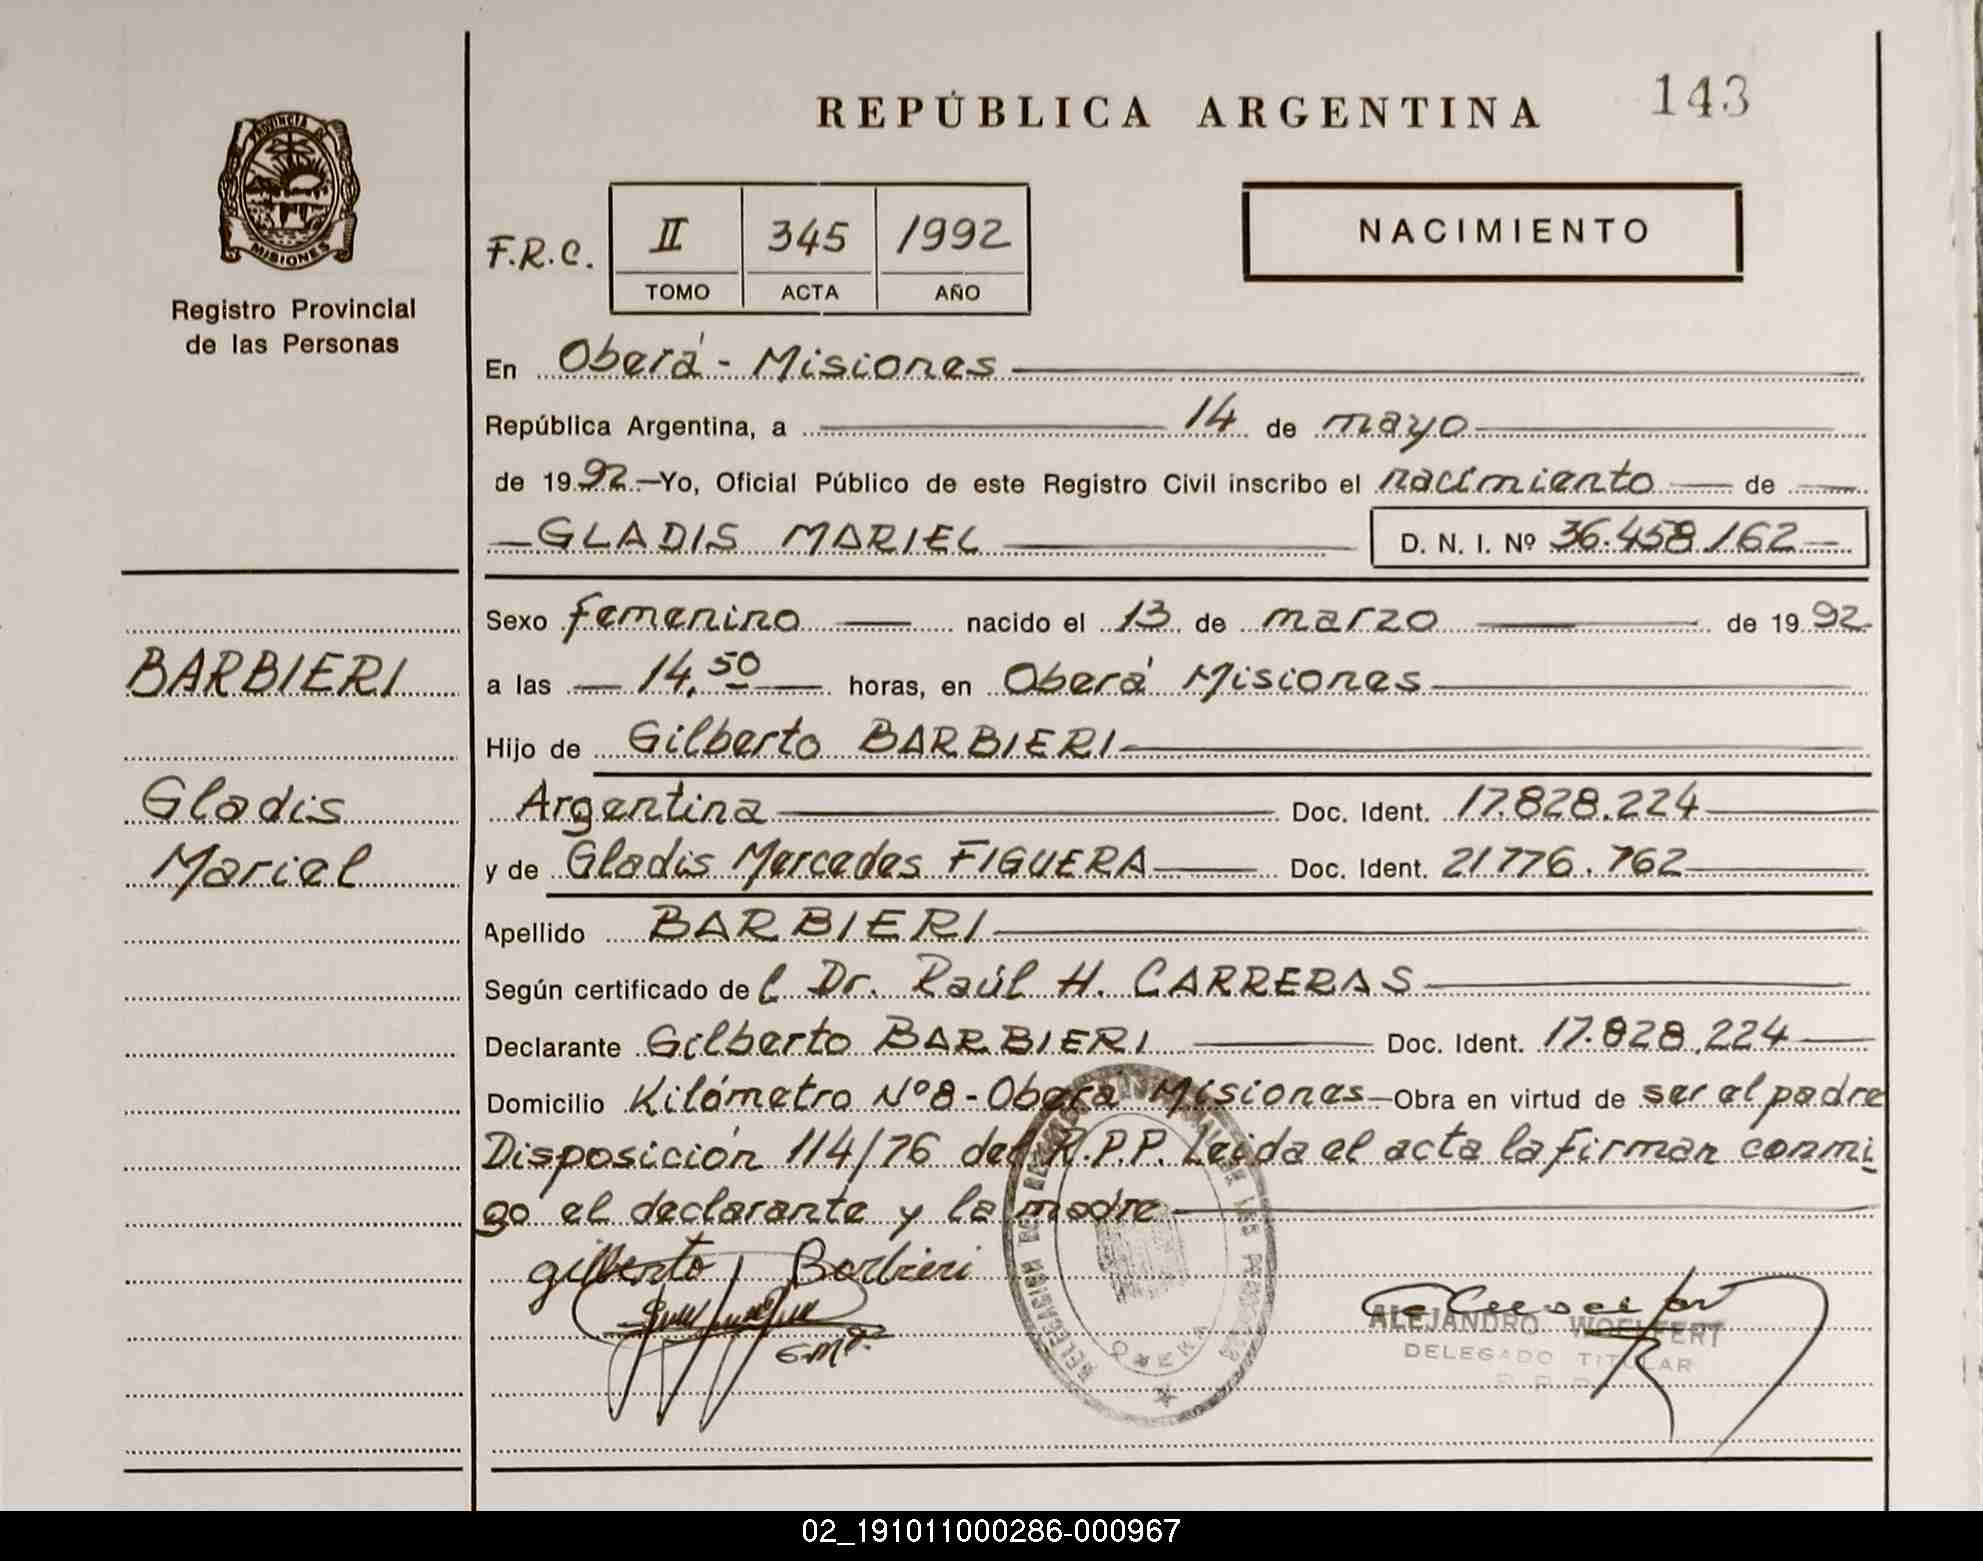 143
REPÚBLICA ARGENTINA
PROVINCIA DE
MISIONES
Registro Provincial
de las Personas
F.R.C.
II 345 1992
TOMO ACTA AÑO
NACIMIENTO
En Oberá - Misiones
República Argentina, a 14 de mayo
de 1992.—Yo, Oficial Público de este Registro Civil inscribo el nacimiento de
GLADIS MARIEL D. N. I. Nº 36.458.162
Sexo femenino nacido el 13 de marzo de 1992
a las 14.50 horas, en Oberá Misiones
Hijo de Gilberto BARBIERI
Argentina Doc. Ident. 17.828.224
y de Gladis Mercedes FIGUERA Doc. Ident. 21776.762
Apellido BARBIERI
Según certificado del Dr. Raúl H. CARRERAS
Declarante Gilberto BARBIERI Doc. Ident. 17.828.224
Domicilio Kilómetro Nº8 - Oberá Misiones—Obra en virtud de ser el padre
Disposición 114/76 del R.P.P. Leida el acta la firman conmi
go el declarante y la madre
gilberto Barbieri
ALEJANDRO WOELFERT
DELEGADO TITULAR
BARBIERI
Gladis
Mariel
02_191011000286-000967